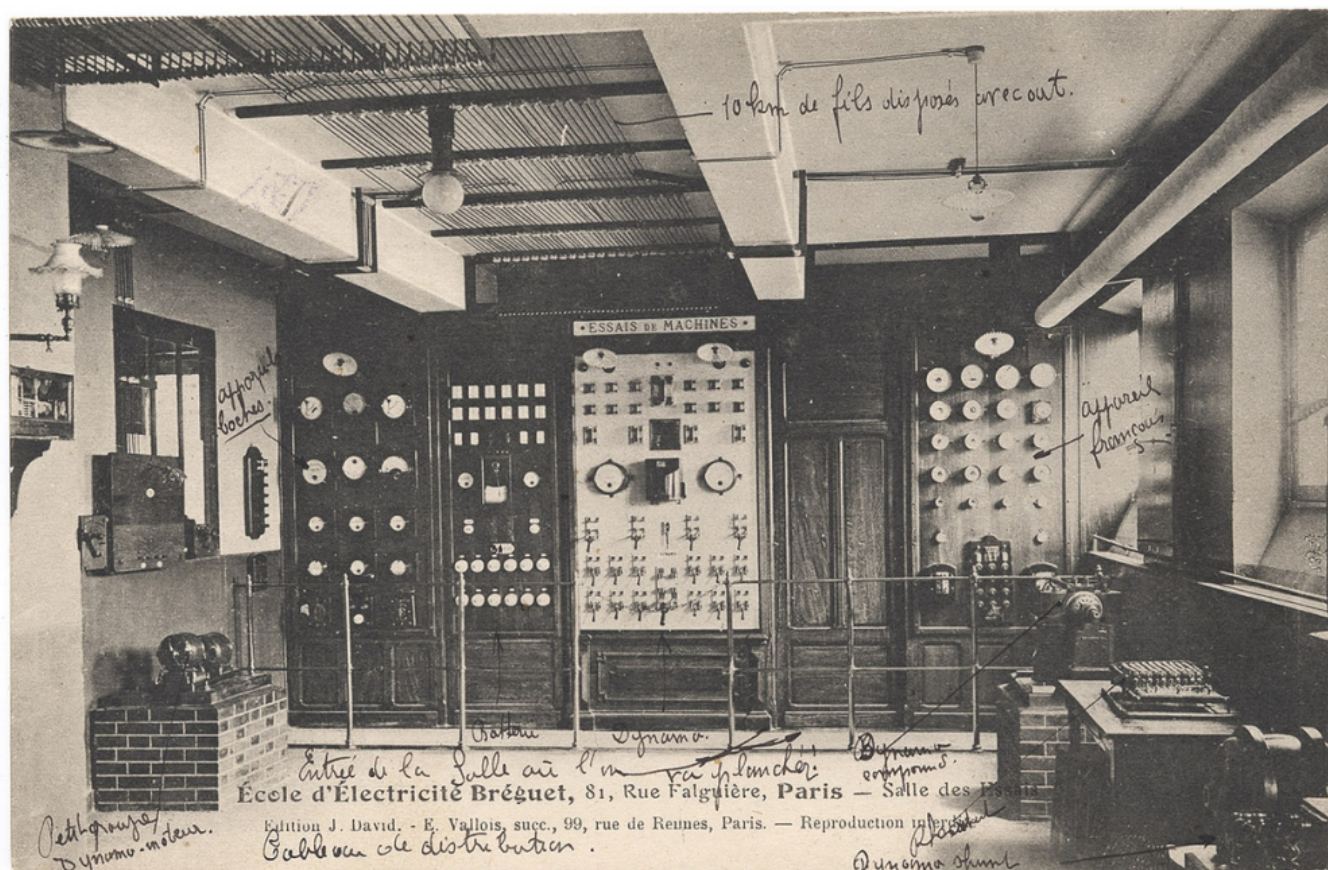 10 km de fils disposés avec art.
ESSAIS DE MACHINES
appareils
boches.
appareil
français
Batterie
Dynamo.
Dynamo
compound.
Entrée de la Salle où l'on va plancher!!
École d'Électricité Bréguet, 81, Rue Falguière, Paris — Salle des Essais
Edition J. David. - E. Vallois, succ., 99, rue de Rennes, Paris. — Reproduction interdite
Petit groupe
Dynamo-moteur.
Tableau de distribution.
Rhéostat
Dynamo shunt